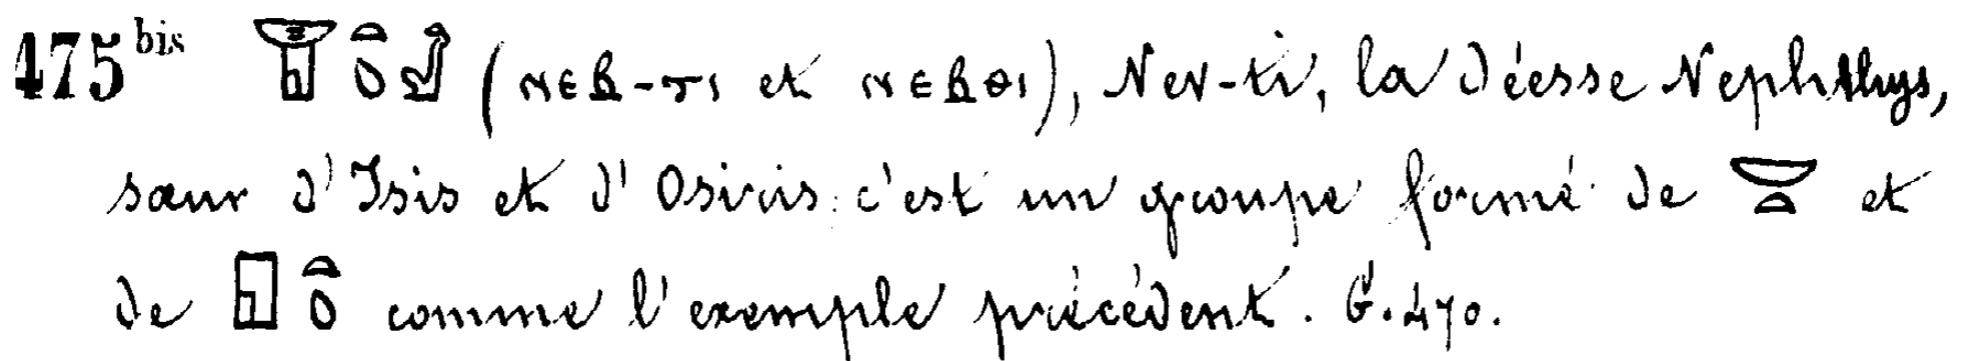 475 bis 𓉠𓏏𓆇𓁐 (ⲛⲉⲃ-ⲧⲓ et ⲛⲉⲃⲑⲓ), Nev-ti, la déesse Nephthys,
sœur d'Isis et d'Osiris: c'est un groupe formé de 𓎟𓏏 et
de 𓉗𓏏𓆇 comme l'exemple précédent. G. 470.